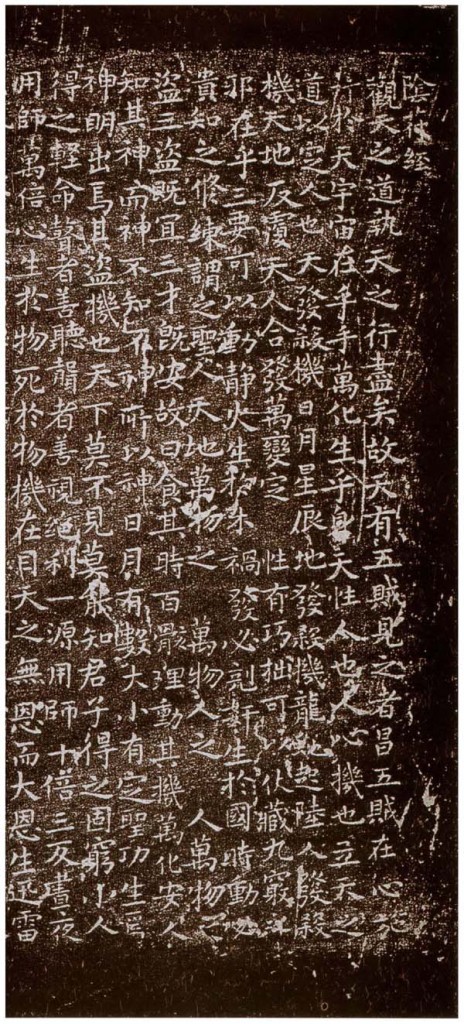 陰符經
觀天之道執天之行盡矣故天有五賊見之者昌五賊在心施
行於天宇宙在乎手萬化生乎身天性人也人心機也立天之
道以定人也天發殺機日月星辰地發殺機龍虵起陸人發殺
機天地反覆天人合發萬變定 性有巧拙可以伏藏九竅之
耶在乎三要可以動静火生於木禍發必剋奸生於國時動必
潰知之修練謂之聖人天地萬物之 萬物人之 人萬物之
盜三盜既冝三才既安故曰食其時百骸理動其機萬化安人
知其神而神不知不神所以神日月有數大小有定聖功生焉
神明出焉其盜機也天下莫不見莫能知君子得之固窮小人
得之輕命瞽者善聽聾者善視絶利一源用師十倍三反晝夜
用師萬倍心生於物死於物機在目天之無恩而大恩生迅雷